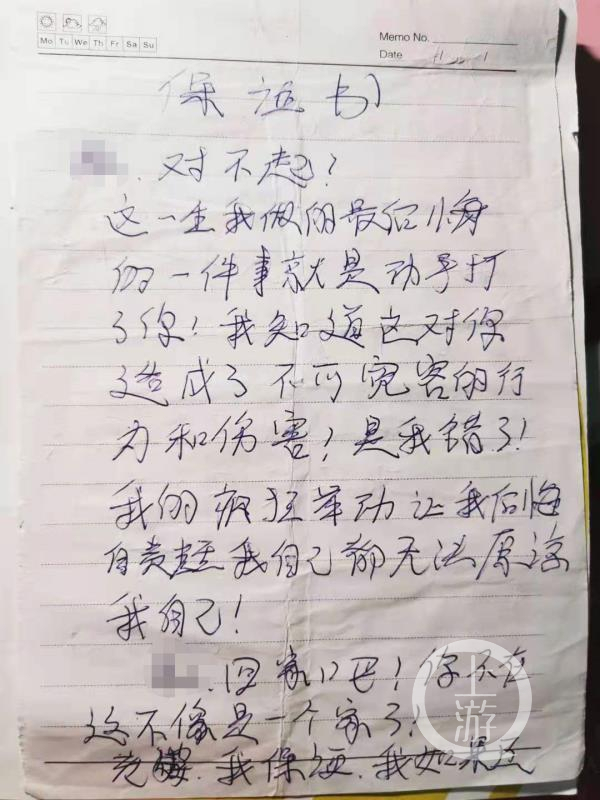 Mo Tu We Th Fr Sa Su
Memo No.
Date
保证书
对不起!
这一生我做的最后悔
的一件事就是动手打
了你!我知道这对你
造成了不可宽容的行
为和伤害!是我错了!
我的疯狂举动让我后悔
自责 我自己都无法原谅
我自己!
回家吧!你不在
这不像是一个家了!
我保证.我如果还
上游